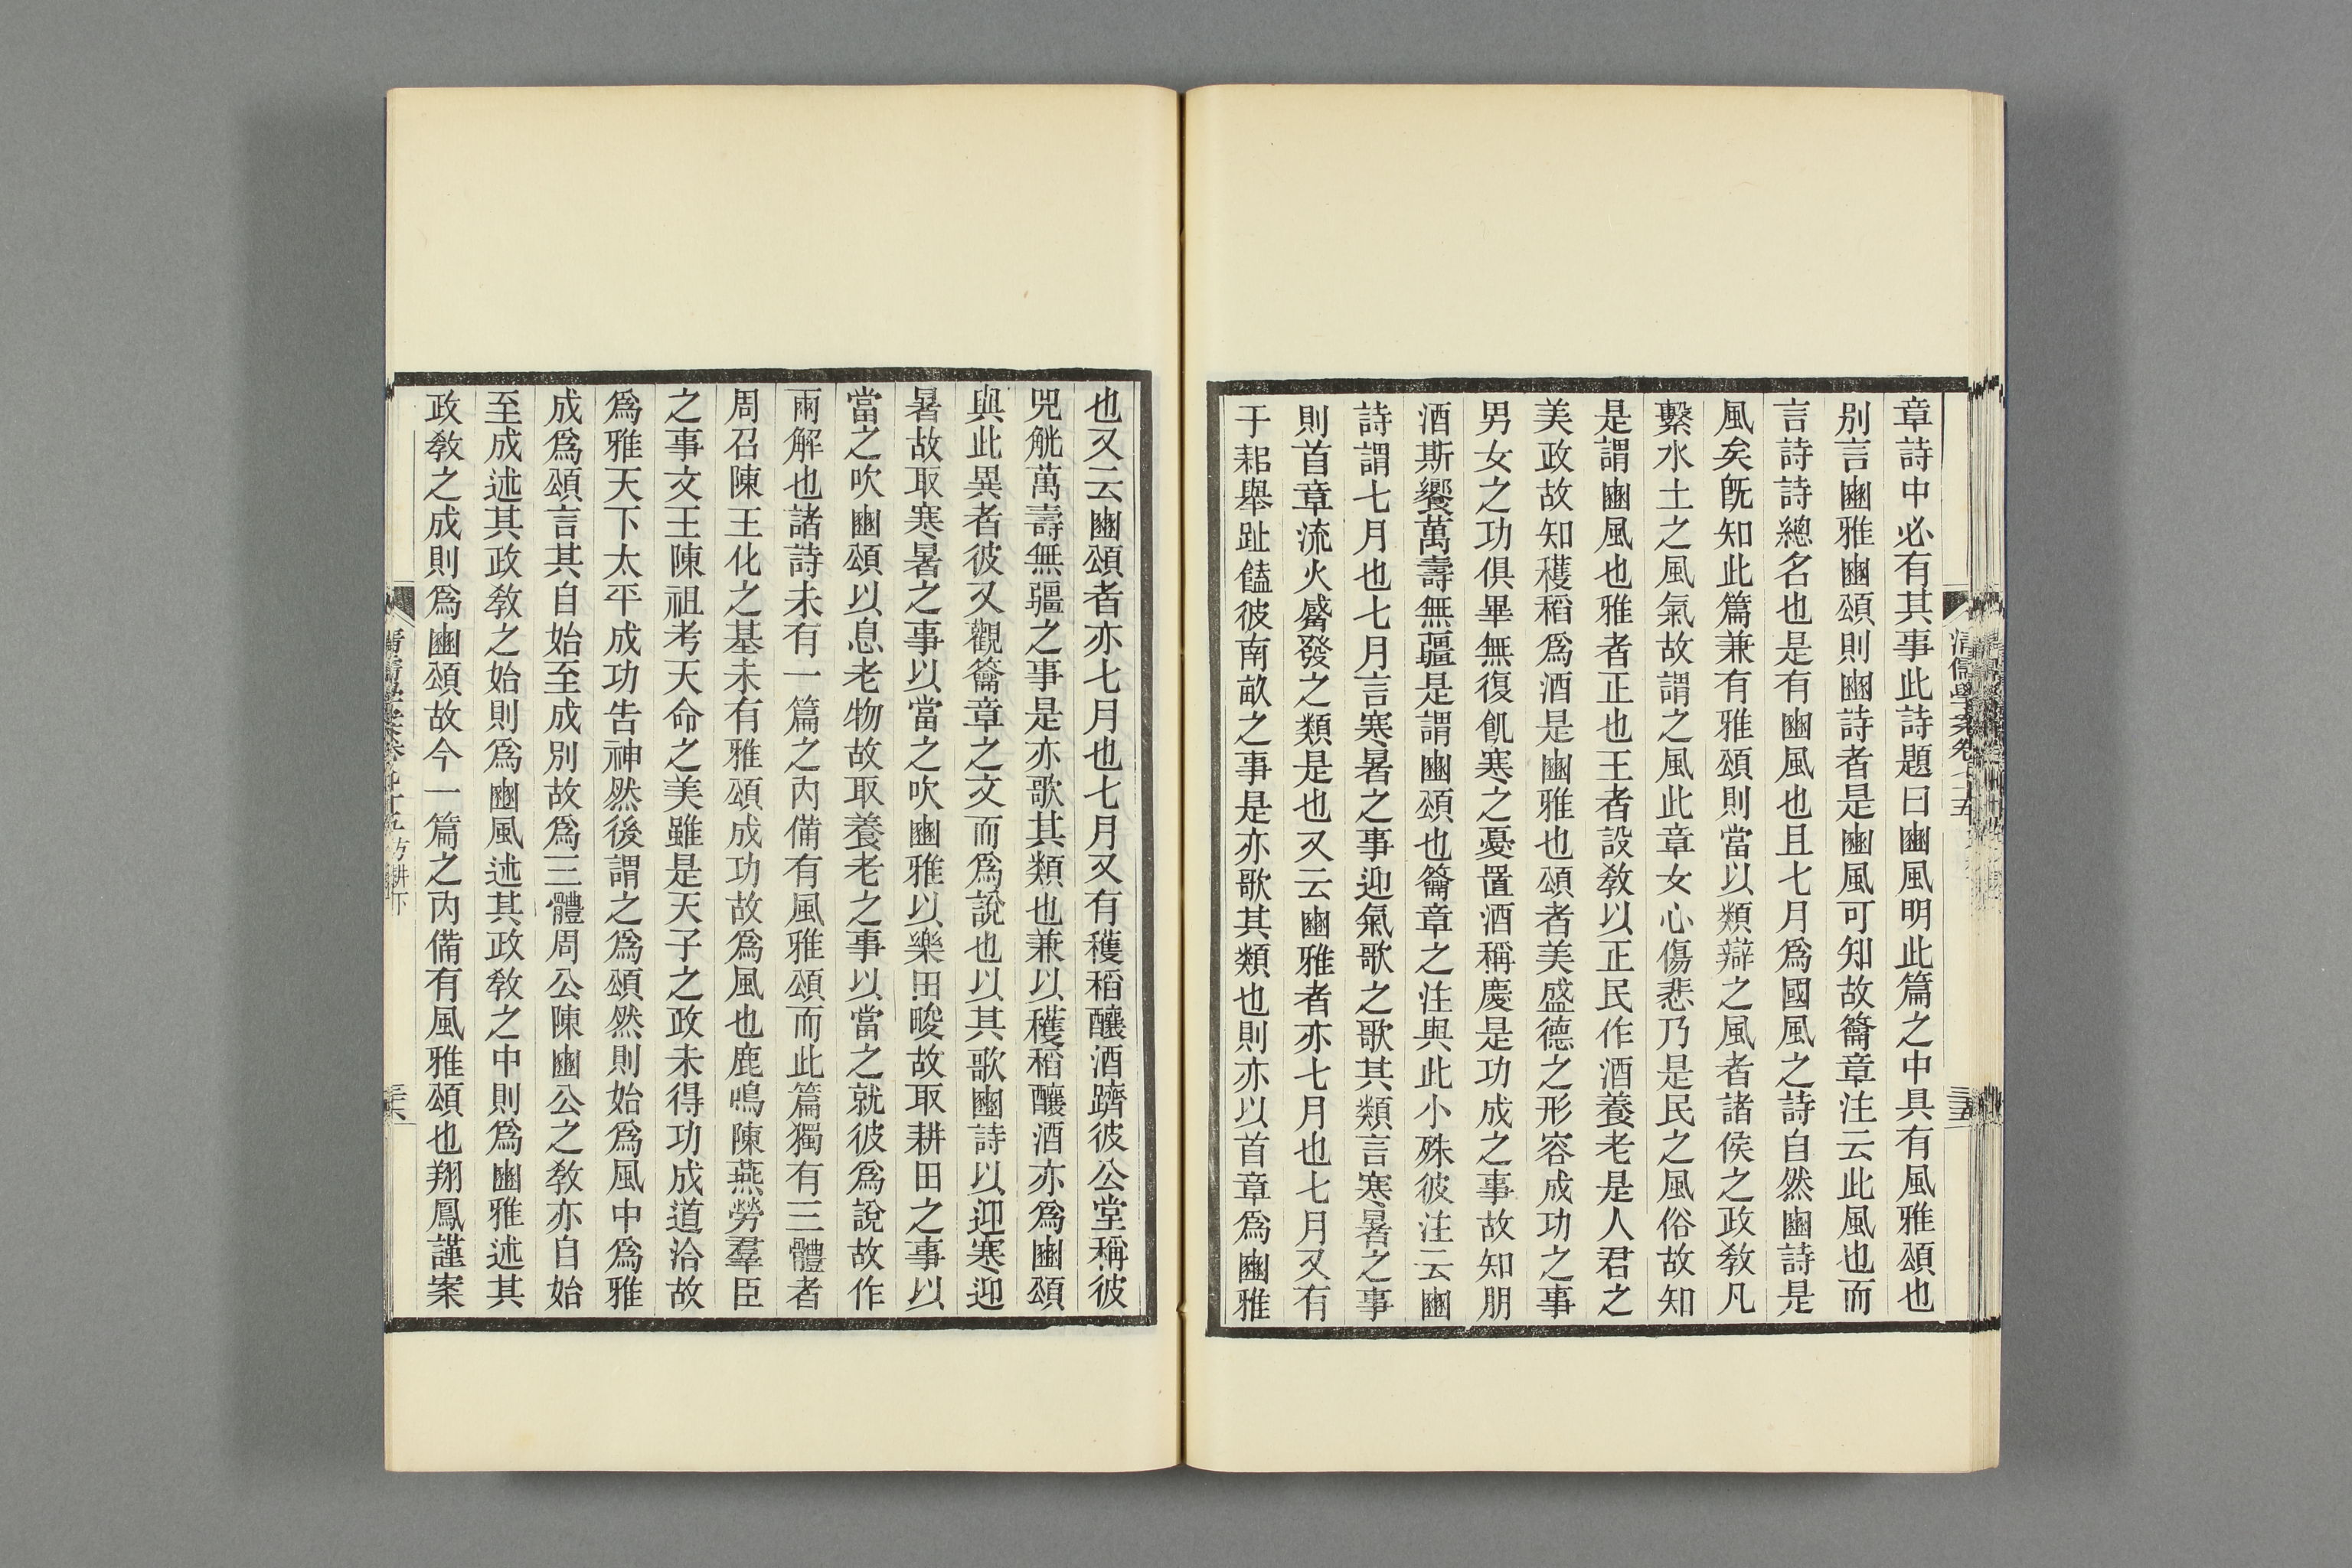 章詩中必有其事此詩題曰豳風明此篇之中具有風雅頌也
別言豳雅豳頌則豳詩者是豳風可知故籥章注云此風也而
言詩詩總名也是有豳風也且七月爲國風之詩自然豳詩是
風矣旣知此篇兼有雅頌則當以類辯之風者諸侯之政敎凡
繫水土之風氣故謂之風此章女心傷悲乃是民之風俗故知
是謂豳風也雅者正也王者設敎以正民作酒養老是人君之
美政故知穫稻爲酒是豳雅也頌者美盛德之形容成功之事
男女之功俱畢無復飢寒之憂置酒稱慶是功成之事故知朋
酒斯饗萬壽無疆是謂豳頌也籥章之注與此小殊彼注云豳
詩謂七月也七月言寒暑之事迎氣歌之歌其類言寒暑之事
則首章流火觱發之類是也又云豳雅者亦七月也七月又有
于耜舉趾饁彼南畝之事是亦歌其類也則亦以首章爲豳雅
也又云豳頌者亦七月也七月又有穫稻釀酒躋彼公堂稱彼
兕觥萬壽無疆之事是亦歌其類也兼以穫稻釀酒亦爲豳頌
與此異者彼又觀籥章之文而爲說也以其歌豳詩以迎寒迎
暑故取寒暑之事以當之吹豳雅以樂田畯故取耕田之事以
當之吹豳頌以息老物故取養老之事以當之就彼爲說故作
兩解也諸詩未有一篇之內備有風雅頌而此篇獨有三體者
周召陳王化之基未有雅頌成功故爲風也鹿鳴陳燕勞羣臣
之事文王陳祖考天命之美雖是天子之政未得功成道洽故
爲雅天下太平成功告神然後謂之爲頌然則始爲風中爲雅
成爲頌言其自始至成別故爲三體周公陳豳公之敎亦自始
至成述其政敎之始則爲豳風述其政敎之中則爲豳雅述其
政敎之成則爲豳頌故今一篇之內備有風雅頌也翔鳳謹案